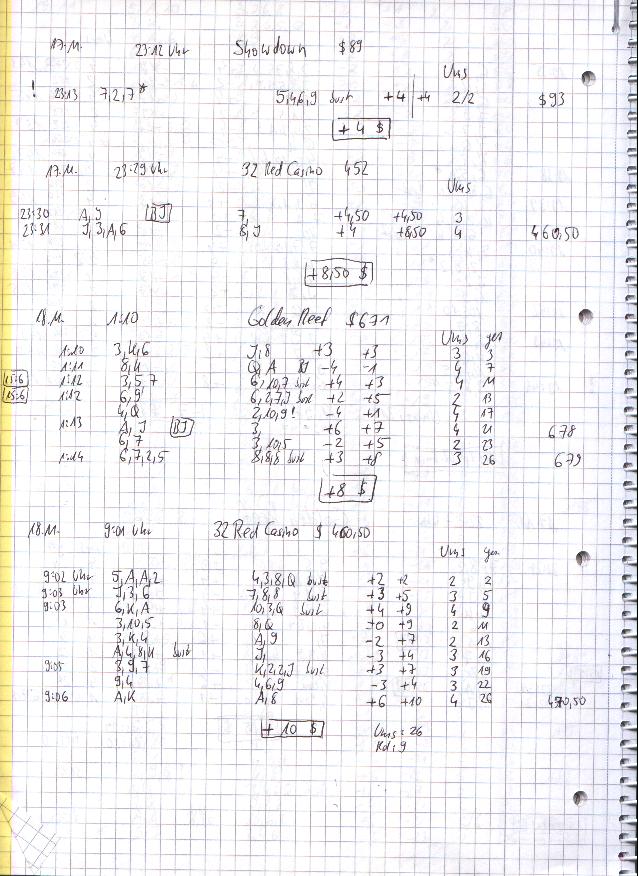 17.11. 23:12 Uhr Showdown $89
Ums
! 23:13 7,2,7* 5,4,6,9 bust +4 +4 2/2 $93
+4 $
17.11. 23:29 Uhr 32 Red Casino 452
Ums
23:30 A,J BJ 7, +4,50 +4,50 3
23:31 J,3,A,6 8,J +4 +8,50 4 460,50
+8,50 $
18.11. 1:10 Golden Reef $671
Ums ges
1:10 3,K,6 J,8 +3 +3 3 3
1:11 8,K Q,A BJ -4 -1 4 7
15:6 1:12 3,5,7 6,10,7 bust +4 +3 4 11
15:6 1:12 6,9 6,2,7,J bust +2 +5 2 13
4,Q 2,10,9! -4 +1 4 17
1:13 A,J BJ 3, +6 +7 4 21 678
6,7 3,10,5 -2 +5 2 23
1:14 6,7,2,5 8,8,8 bust +3 +8 3 26 679
+8 $
18.11. 9:01 Uhr 32 Red Casino $ 460,50
Ums ges
9:02 Uhr 5,A,A,2 4,3,8,Q bust +2 +2 2 2
9:03 Uhr J,3,6 7,8,8 bust +3 +5 3 5
9:03 6,K,A 10,3,Q bust +4 +9 4 9
3,10,5 8,Q +0 +9 2 11
3,K,4 A,9 -2 +7 2 13
A,4,8,K bust J, -3 +4 3 16
9:05 8,9,7 K,2,2,J bust +3 +7 3 19
9,4 4,6,9 -3 +4 3 22
9:06 A,K A,8 +6 +10 4 26 470,50
+ 10 $ Ums: 26
Rd: 9